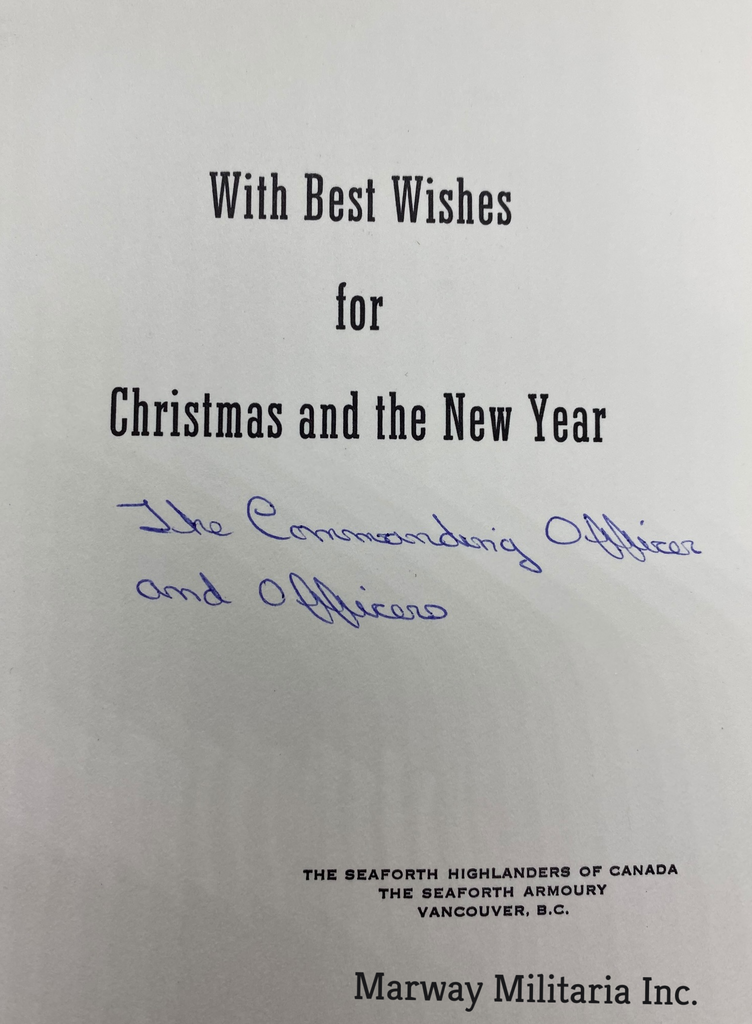 With Best Wishes
for
Christmas and the New Year
The Commanding Officer
and Officers
THE SEAFORTH HIGHLANDERS OF CANADA
THE SEAFORTH ARMOURY
VANCOUVER, B.C.
Marway Militaria Inc.